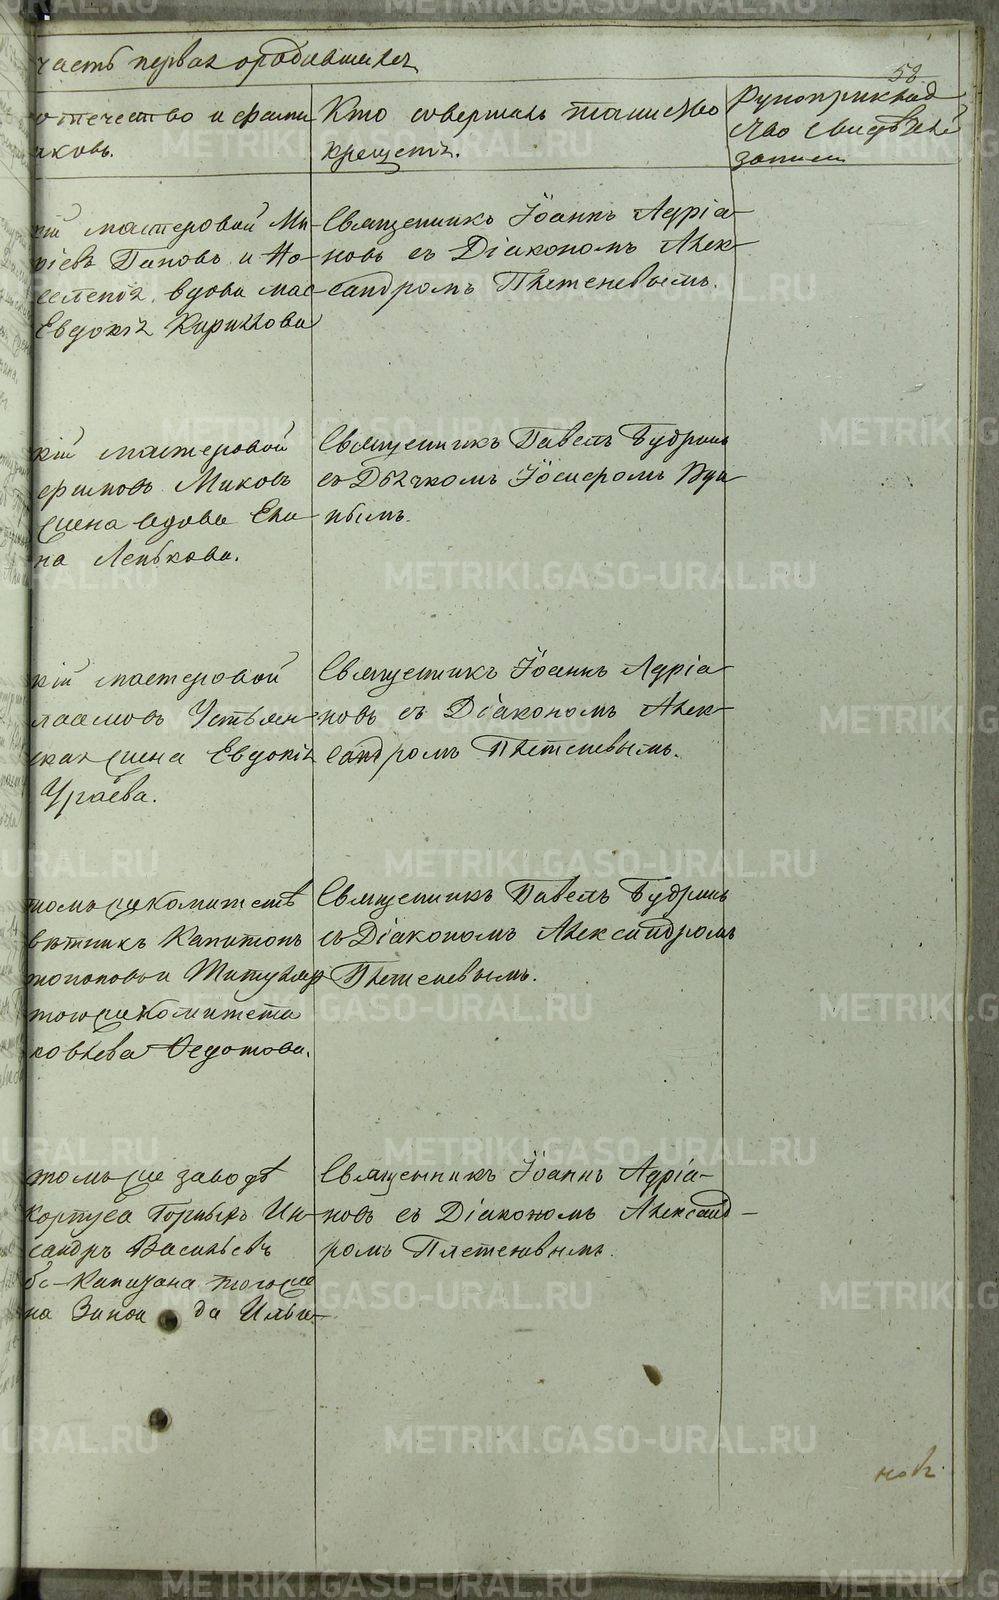 часть первая о родившихся
58
отчество и фами-
ковъ.
Кто совершалъ таинство
крещенія.
Рукоприклад
ство свидѣтелей
записи
кій мастеровой Ми-
ріевъ Пановъ и По-
селенія, вдова мас-
Евдокія Кирилова
Священникъ Іоаннъ Адріа-
новъ съ Діакономъ Алек-
сандромъ Плетеневымъ.
кій мастеровой
филовъ Миковъ
жена вдова Ека-
на Лепькова.
Священникъ Павелъ Будринъ
съ Дьячкомъ Іосифомъ
нымъ.
кій мастеровой
лаамовъ Устьян-
ская жена Евдокія
Ураева.
Священникъ Іоаннъ Адріа-
новъ съ Діакономъ Алек-
сандромъ Плетеневымъ.
томъ же комитетѣ
вѣтникъ Капитонъ
топоповъ и Титуляр
того же комитета
ковлева Ѳедотова.
Священникъ Павелъ Будринъ
съ Діакономъ Александромъ
Плетеневымъ.
томъ же заводѣ
Корпуса Горныхъ Ин-
сандръ Васильевъ
бс-Капитана того же
на Зинои да Ильи-
Священникъ Іоаннъ Адріа-
новъ съ Діакономъ Александ-
ромъ Плетеневымъ.
METRIKI.GASO-URAL.RU